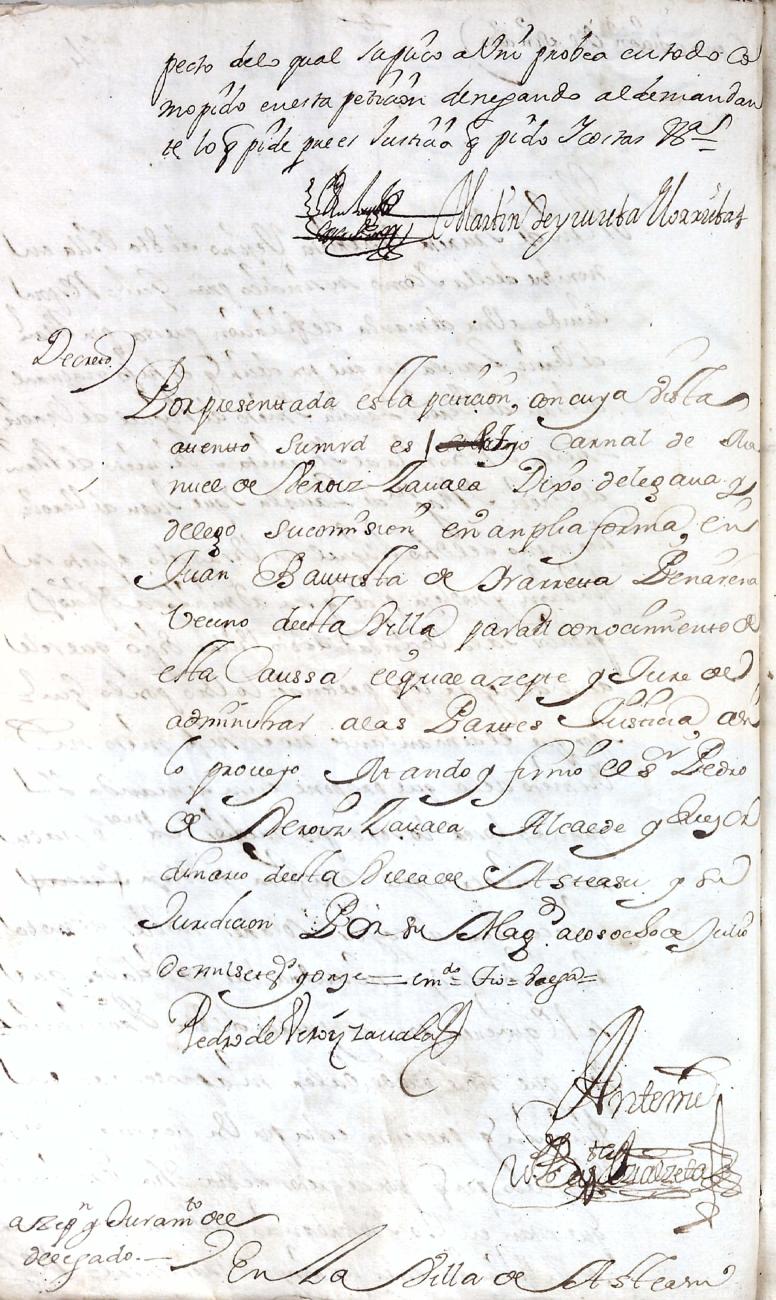 pecto de lo qual suplico a Vm probea en todo co
mo pido en esta peticion denegando al demandan
te lo q pide que es Justicia q pido Icostas &ª
Martin de yrureta Vorrutia
Decreto
Por presentada esta peticion, con cuya vista
atento sumrd es hijo Carnal de Ma
nuel de Veroiz Zavala Dixo delegava y
delego su comision en anplia forma, en
Juan Bauttista de Ybarreta Benarena
Vecino destta Villa para el conocimiento de
esta Caussa el qual azepte y Jure de
administrar a las Parttes Justicia, asi
lo proveyo Mando y firmo el sr Pedro
de Veroiz Zavala Alcalde y Juez or
dinario destta Villa de Asteasu y su
Juridicion Por su Magd a los ocho de Julio
de mil setezs y onze = emdo = Tio =
Pedro de Veroiz Zavala
Antemi
azepn y Juramto del
delegado
En La Villa de Asteasu